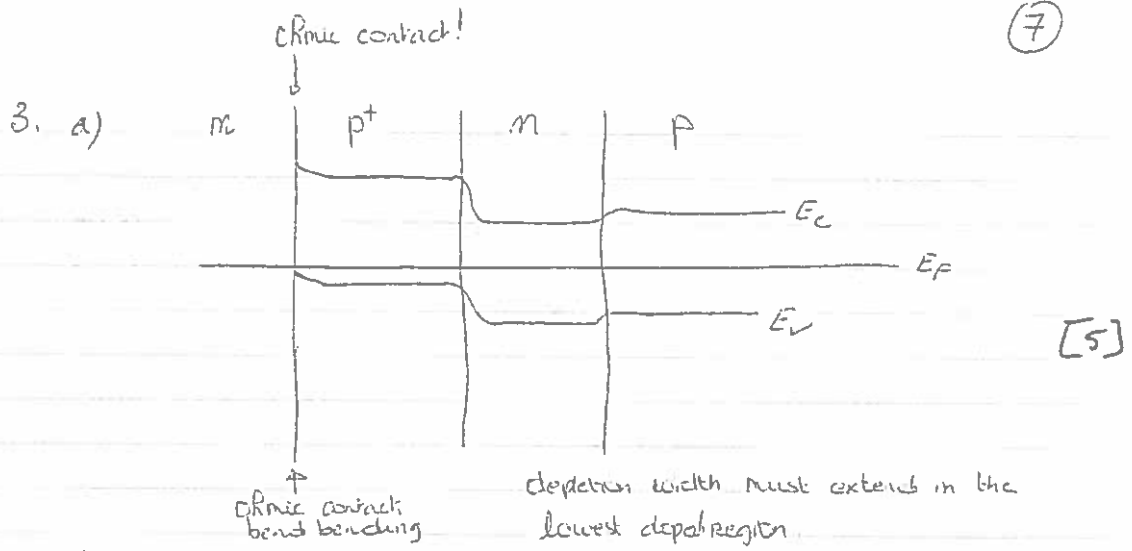 7
ohmic contact!
3. a) m p+ n p
Ec
EF
Ev
[5]
ohmic contact
band bending
depletion width must extend in the
lowest doped region.